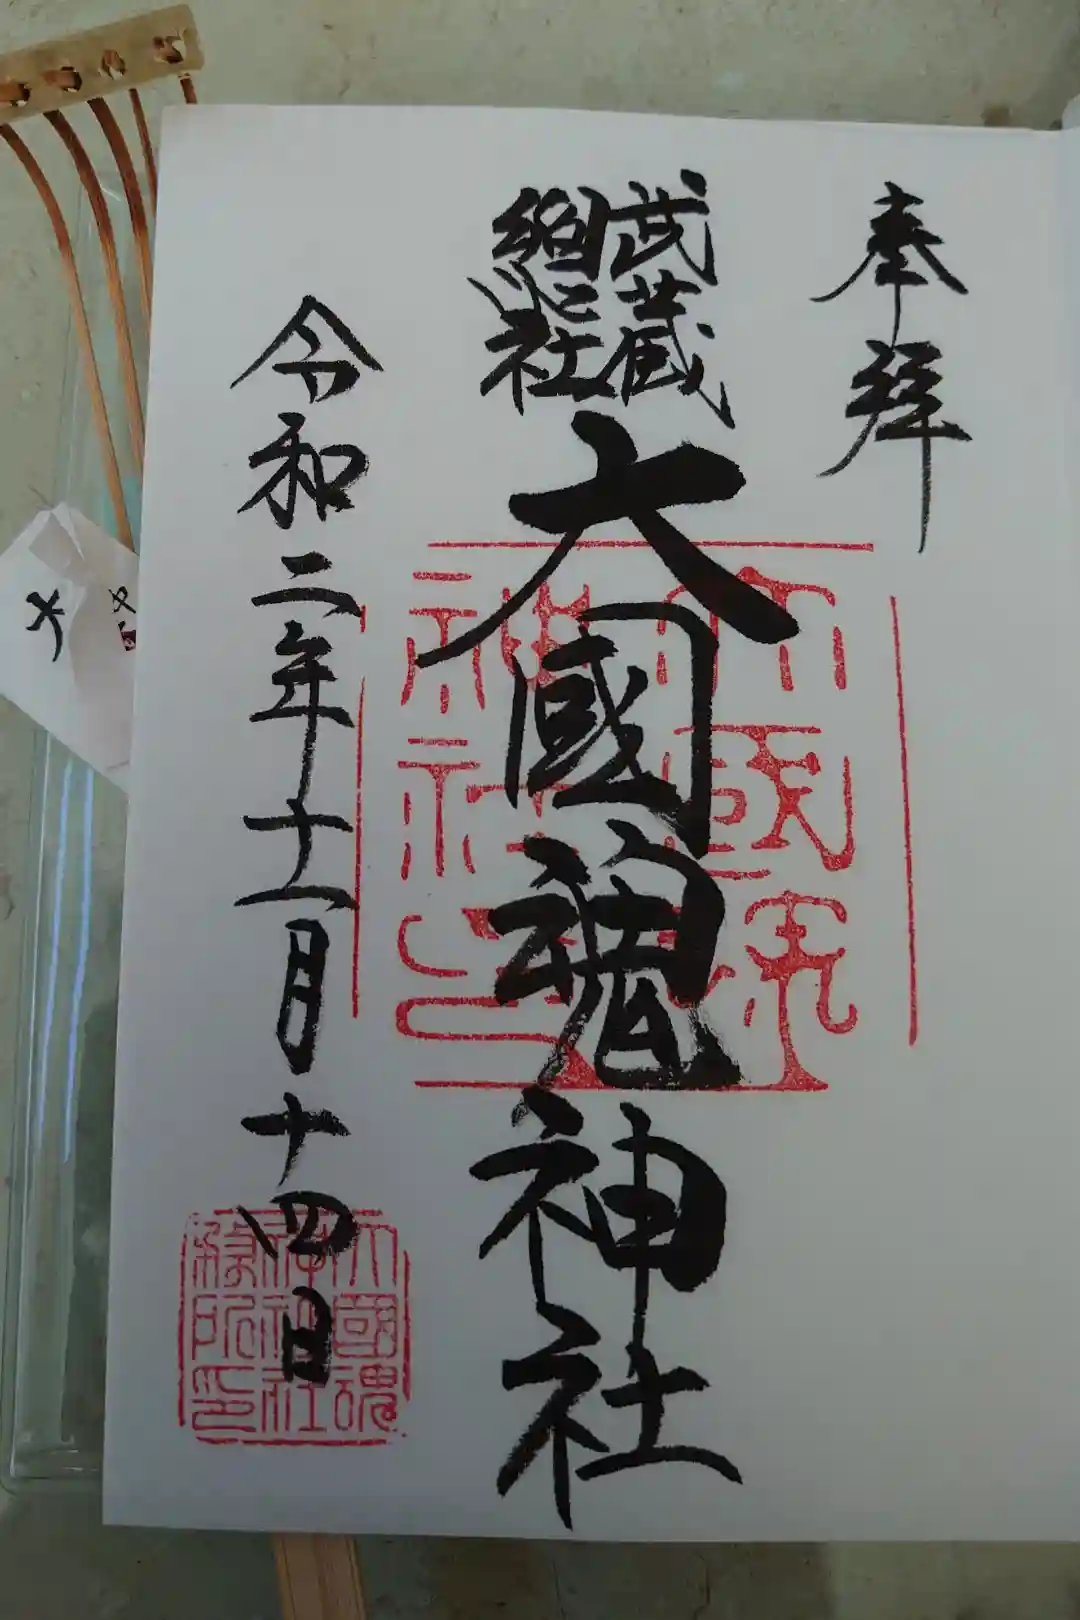 奉拝
武蔵
總社
大國魂神社
令和二年十一月十四日
大國魂
神社印
大國魂
神社
務所印